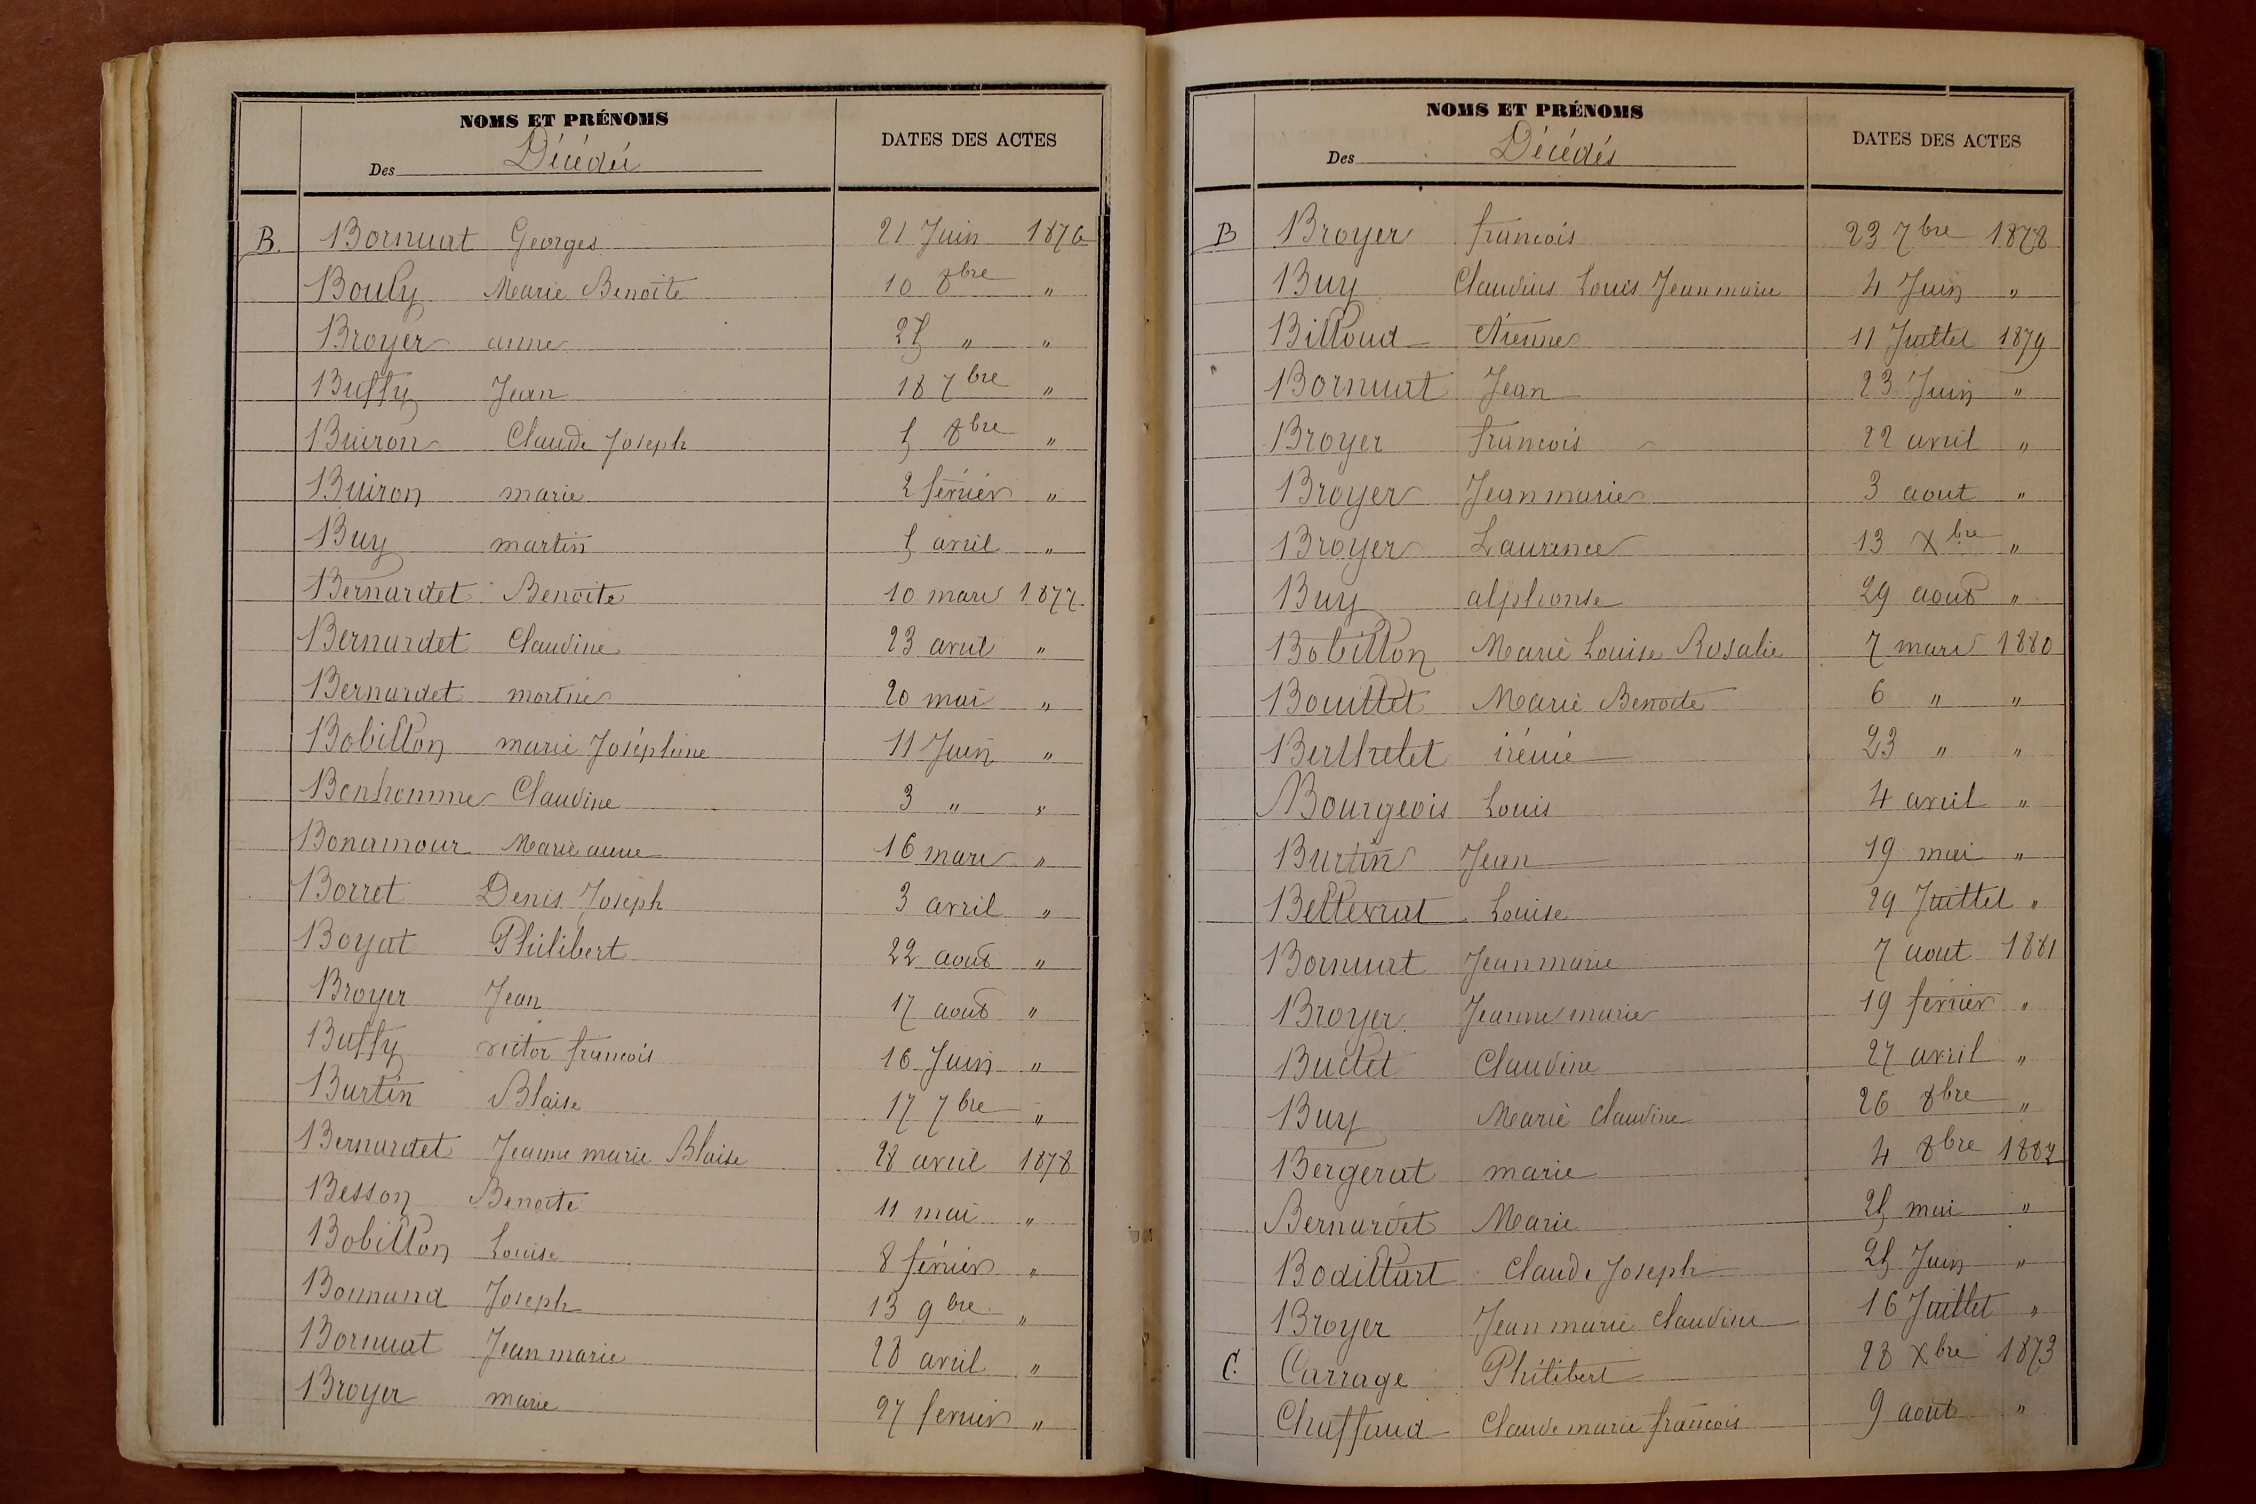 NOMS ET PRÉNOMS
Des Décédés
DATES DES ACTES
B. Bornuat Georges 21 Juin 1876
Bouly Marie Benoite 10 8bre "
Broyer anne 25 " "
Buffy Jean 18 7bre "
Buiron Claude Joseph 5 8bre "
Buiron marie 2 février "
Buy martin 5 avril "
Bernardet Benoite 10 mars 1877
Bernardet Claudine 23 avril "
Bernardet 20 mai "
Bobillon marie Joséphine 11 Juin "
Bonhomme Claudine 3 " "
Bonamour Marie anne 16 mars "
Borret Denis Joseph 3 avril "
Boyat Philibert 22 aout "
Broyer Jean 17 aout "
Buffy victor francois 16 Juin "
Burtin Blaise 17 7bre "
Bernardet Jeanne marie Blaise 28 avril 1878
Besson Benoite 11 mai "
Bobillon Louise 8 février "
Bounand Joseph 13 9bre "
Bornuat Jean marie 28 avril "
Broyer marie 27 fevrier "
NOMS ET PRÉNOMS
Des Décédés
DATES DES ACTES
B Broyer francois 23 7bre 1878
Buy Claudius Louis Jean marie 4 Juin "
Billoud Etienne 11 Juillet 1879
Bornuat Jean 23 Juin "
Broyer francois 22 avril "
Broyer Jean marie 3 aout "
Broyer Laurence 13 Xbre "
Buy alphonse 29 aout "
Bobillon Marie Louise Rosalie 7 mars 1880
Bouillet Marie Benoite 6 " "
Berthelet irénée 23 " "
Bourgeois Louis 4 avril "
Burtin Jean 19 mai "
Bellevrat Louise 29 Juillet "
Bornuat Jean marie 7 aout 1881
Broyer Jeanne marie 19 fevrier "
Buclet Claudine 27 avril "
Buy Marie Claudine 26 8bre "
Bergerat marie 4 8bre 1882
Bernardet Marie 25 mai "
Bodillart Claude Joseph 25 Juin "
Broyer Jean marie Claudius 16 Juillet "
C. Carrage Philibert 28 Xbre 1873
Chaffaud Claude marie francois 9 aout "